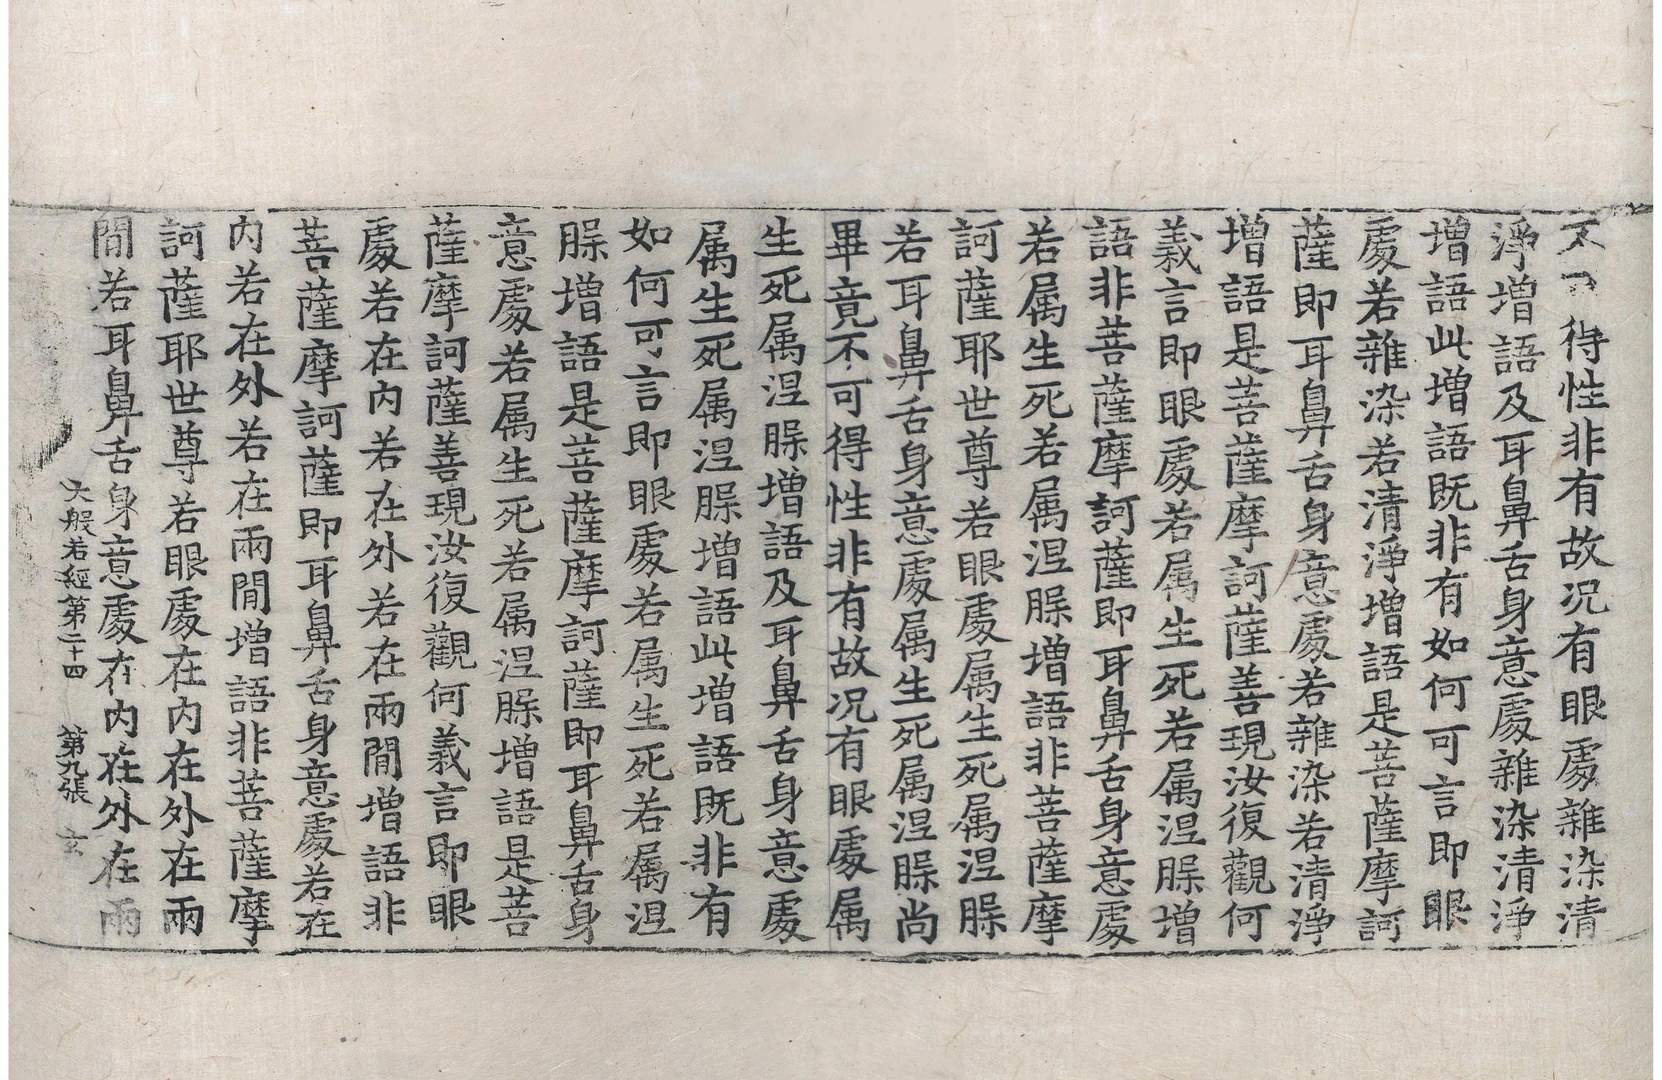 得性非有故况有眼處雜染清
淨增語及耳鼻舌身意處雜染清淨
增語此增語既非有如何可言即眼
處若雜染若清淨增語是菩薩摩訶
薩即耳鼻舌身意處若雜染若清淨
增語是菩薩摩訶薩善現汝復觀何
義言即眼處若属生死若属涅槃增
語非菩薩摩訶薩即耳鼻舌身意處
若属生死若属涅槃增語非菩薩摩
訶薩耶世尊若眼處属生死属涅槃
若耳鼻舌身意處属生死属涅槃尚
畢竟不可得性非有故况有眼處属
生死属涅槃增語及耳鼻舌身意處
属生死属涅槃增語此增語既非有
如何可言即眼處若属生死若属涅
槃增語是菩薩摩訶薩即耳鼻舌身
意處若属生死若属涅槃增語是菩
薩摩訶薩善現汝復觀何義言即眼
處若在内若在外若在兩閒增語非
菩薩摩訶薩即耳鼻舌身意處若在
内若在外若在兩閒增語非菩薩摩
訶薩耶世尊若眼處在内在外在兩
閒若耳鼻舌身意處在内在外在兩
大般若經第二十四 第九張 玄